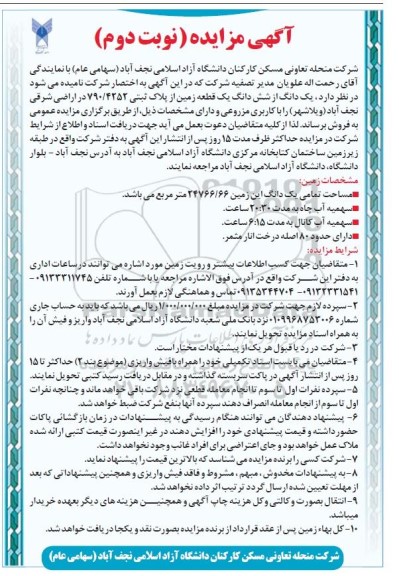 آگهی مزایده (نوبت دوم)
شرکت منحله تعاونی مسکن کارکنان دانشگاه آزاد اسلامی نجف آباد (سهامی عام) با نمایندگی
آقای رحمت اله علویان مدیر تصفیه شرکت که در این آگهی به اختصار شرکت نامیده می شود
در نظر دارد ، یک دانگ از شش دانگ یک قطعه زمین از پلاک ثبتی ۷۹۰/۴۲۵۲ در اراضی شرقی
آباد (ویلاشهر) را با کاربری مزروعی و دارای مشخصات ذیل، از طریق برگزاری مزایده عمومی
به فروش برساند. لذا از کلیه متقاضیان دعوت بعمل می آید جهت دریافت اسناد و اطلاع از شرایط
شرکت در مزایده حداکثر ظرف مدت ۱۵ روز پس از انتشار این آگهی به دفتر شرکت واقع در طبقه
زیرزمین ساختمان کتابخانه مرکزی دانشگاه آزاد اسلامی نجف آباد به آدرس نجف آباد - بلوار
دانشگاه، دانشگاه آزاد اسلامی نجف آباد مراجعه نمایند.
مشخصات زمین:
■مساحت تمامی یک دانگ این زمین ۲۴۷۶۶/۶۶ متر مربع می باشد.
■سهمیه آب چاه به مدت ۲۰:۳۰ ساعت.
■سهمیه آب کانال به مدت ۶:۱۵ ساعت.
■دارای حدود ۸۰ اصله درخت انار مثمر.
شرایط مزایده:
۱- متقاضیان جهت کسب اطلاعات بیشتر و رویت زمین مورد اشاره می توانند در ساعات اداری
به دفتر این شرکت واقع در آدرس فوق الاشاره مراجعه یا با شماره تلفن ۰۹۱۳۳۳۱۱۷۴۵-
۰۹۱۳۳۳۳۱۵۴۱- ۰۹۱۳۵۳۴۴۷۰۴ تماس و هماهنگی لازم بعمل آورند.
۲- سپرده لازم جهت شرکت در مزایده مبلغ ۱/۰۰۰/۰۰۰/۰۰۰ ریال می باشد که باید به حساب جاری
شماره ۰۱۰۹۹۶۸۷۵۳۰۰۶ نزد بانک ملی شعبه دانشگاه آزاد اسلامی نجف آباد واریز و فیش آن را
به همراه اسناد مزایده تحویل نمایند.
۳- شرکت در رد یا قبول هر یک از پیشنهادات مختار است.
۴- متقاضیان می بایست اسناد تکمیلی خود را همراه با فیش واریزی (موضوع بند ۲) حداکثر تا ۱۵
روز پس از انتشار آگهی در پاکت دربسته گذاشته و در مقابل دریافت رسید کتبی تحویل نمایند.
۵- سپرده نفرات اول تا سوم تا انجام معامله قطعی نزد شرکت باقی خواهد ماند و چنانچه نفرات
اول تا سوم از انجام معامله انصراف دهند سپرده آنها بنفع شرکت ضبط خواهد شد.
۶- پیشنهاد دهندگان می توانند هنگام رسیدگی به پیشنهادات در زمان بازگشائی پاکات
حضور داشته و قیمت پیشنهادی خود را افزایش دهند در غیر اینصورت قیمت کتبی ارائه شده
ملاک عمل خواهد بود و جای اعتراضی برای افراد غائب وجود نخواهد داشت.
۷- شرکت کسی را برنده مزایده می شناسد که بالاترین قیمت را پیشنهاد نماید.
۸- به پیشنهادات مخدوش ، مبهم ، مشروط و فاقد فیش واریزی و همچنین پیشنهاداتی که بعد
از مهلت تعیین شده ارسال گردد ترتیب اثر داده نخواهد شد.
۹- انتقال بصورت وکالتی و کل هزینه چاپ آگهی و همچنین هزینه های دیگر بعهده خریدار
میباشد.
۱۰- کل بهاء زمین پس از عقد قرارداد از برنده مزایده بصورت نقد و یکجا دریافت خواهد شد.
شرکت منحله تعاونی مسکن کارکنان دانشگاه آزاد اسلامی نجف آباد (سهامی عام)